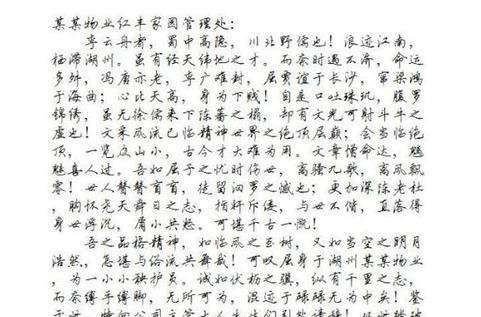 某某物业红丰家园管理处：
李云舟者，蜀中高隐，川北野儒也！浪迹江南，
栖滞湖州。虽有经天纬地之才。而奈时遇不济，命运
多舛，冯唐亦老，李广难封，屈贾谊于长沙，窜梁鸿
于海曲；心比天高，身为下贱！自是口吐珠玑，腹罗
锦绣，虽无徐儒来下陈蕃之榻，却有文光可射斗牛之
虚也！文采风流已临精神世界之绝顶层巅；会当临绝
顶，一览众山小，古今才大难为用。文章憎命达，魑
魅喜人过。吾如屈子之忧时伤世，高骚九歌，离风飘
零！世人瞀瞀盲盲，徒留汨罗之憾也；更加深陈老杜
，胸怀尧天舜日之志，指斥斥倭，与世不偕，直落得
身世浮沉，屑小共怒。可堪千古一慨！
吾之品格精神，如临风之玉树，又如当空之明月
浩然，怎堪与俗流共舞哉！可叹屈身于湖州某某物业
，为一小小秩护员。诚如伏枥之骥，纵有千里之志，
而奈缚手缚脚，无所可为，混迹于碌碌无为中矣！鉴